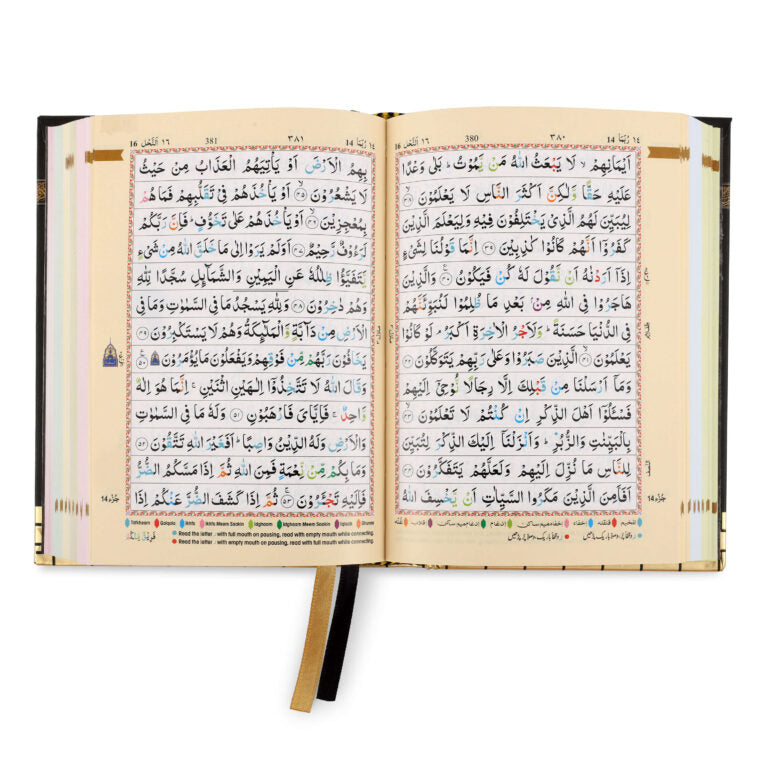 ١٤ رُبَمَا 14 ٣٨٠ 380 ١٦ اَلنَّحْل 16
اَيْمَانِهِمْ ۙ لَا يَبْعَثُ اللّٰهُ مَنْ يَّمُوْتُ ؕ بَلٰى وَعْدًا
عَلَيْهِ حَقًّا وَّلٰكِنَّ اَكْثَرَ النَّاسِ لَا يَعْلَمُوْنَ ۙ‏﴿۳۸﴾
لِيُبَيِّنَ لَهُمُ الَّذِىْ يَخْتَلِفُوْنَ فِيْهِ وَلِيَعْلَمَ الَّذِيْنَ
كَفَرُوْۤا اَنَّهُمْ كَانُوْا كٰذِبِيْنَ ﴿۳۹﴾ اِنَّمَا قَوْلُنَا لِشَىْءٍ
اِذَاۤ اَرَدْنٰهُ اَنْ نَّقُوْلَ لَهٗ كُنْ فَيَكُوْنُ ﴿۴۰﴾ وَالَّذِيْنَ
هَاجَرُوْا فِى اللّٰهِ مِنْۢ بَعْدِ مَا ظُلِمُوْا لَنُبَوِّئَنَّهُمْ
فِى الدُّنْيَا حَسَنَةً ؕ وَلَاَجْرُ الْاٰخِرَةِ اَكْبَرُ ۘ لَوْ كَانُوْا
يَعْلَمُوْنَ ۙ﴿۴۱﴾ الَّذِيْنَ صَبَرُوْا وَعَلٰى رَبِّهِمْ يَتَوَكَّلُوْنَ ﴿۴۲﴾
وَمَاۤ اَرْسَلْنَا مِنْ قَبْلِكَ اِلَّا رِجَالًا نُّوْحِىْۤ اِلَيْهِمْ
فَسْـَٔلُوْۤا اَهْلَ الذِّكْرِ اِنْ كُنْتُمْ لَا تَعْلَمُوْنَ ۙ﴿۴۳﴾
بِالْبَيِّنٰتِ وَالزُّبُرِ ؕ وَاَنْزَلْنَاۤ اِلَيْكَ الذِّكْرَ لِتُبَيِّنَ
لِلنَّاسِ مَا نُزِّلَ اِلَيْهِمْ وَلَعَلَّهُمْ يَتَفَكَّرُوْنَ ﴿۴۴﴾
اَفَاَمِنَ الَّذِيْنَ مَكَرُوا السَّيِّاٰتِ اَنْ يَّخْسِفَ اللّٰهُ
جُزء 14
تفخيم قلقله إخفاء إخفاء ميم ساكن إدغام إدغام ميم ساكن قلاب غنّه
١٤ رُبَمَا 14 ٣٨١ 381 ١٦ اَلنَّحْل 16
بِهِمُ الْاَرْضَ اَوْ يَاْتِيَهُمُ الْعَذَابُ مِنْ حَيْثُ
لَا يَشْعُرُوْنَ ۙ﴿۴۵﴾ اَوْ يَاْخُذَهُمْ فِىْ تَقَلُّبِهِمْ فَمَا هُمْ
بِمُعْجِزِيْنَ ۙ﴿۴۶﴾ اَوْ يَاْخُذَهُمْ عَلٰى تَخَوُّفٍ ؕ فَاِنَّ رَبَّكُمْ
لَرَءُوْفٌ رَّحِيْمٌ ﴿۴۷﴾ اَوَلَمْ يَرَوْا اِلٰى مَا خَلَقَ اللّٰهُ مِنْ شَىْءٍ
يَّتَفَيَّؤُا ظِلٰلُهٗ عَنِ الْيَمِيْنِ وَالشَّمَآئِلِ سُجَّدًا لِّلّٰهِ
وَهُمْ دٰخِرُوْنَ ﴿۴۸﴾ وَلِلّٰهِ يَسْجُدُ مَا فِى السَّمٰوٰتِ وَمَا فِى
الْاَرْضِ مِنْ دَآبَّةٍ وَّالْمَلٰٓئِكَةُ وَهُمْ لَا يَسْتَكْبِرُوْنَ ﴿۴۹﴾
يَخَافُوْنَ رَبَّهُمْ مِّنْ فَوْقِهِمْ وَيَفْعَلُوْنَ مَا يُؤْمَرُوْنَ ﴿۵۰﴾
وَقَالَ اللّٰهُ لَا تَتَّخِذُوْۤا اِلٰهَيْنِ اثْنَيْنِ ۚ اِنَّمَا هُوَ اِلٰهٌ
وَّاحِدٌ ۚ فَاِيَّاىَ فَارْهَبُوْنِ ﴿۵۱﴾ وَلَهٗ مَا فِى السَّمٰوٰتِ
وَالْاَرْضِ وَلَهُ الدِّيْنُ وَاصِبًا ؕ اَفَغَيْرَ اللّٰهِ تَتَّقُوْنَ ﴿۵۲﴾
وَمَا بِكُمْ مِّنْ نِّعْمَةٍ فَمِنَ اللّٰهِ ثُمَّ اِذَا مَسَّكُمُ الضُّرُّ
فَاِلَيْهِ تَجْــَٔرُوْنَ ﴿۵۳﴾ ثُمَّ اِذَا كَشَفَ الضُّرَّ عَنْكُمْ اِذَا
جُزء 14
Tafkheem Qalqala Ikhfa Ikhfa Meem Saakin Idgham Idgham Meem Saakin Iqlab Ghunna
Read the letter ر with full mouth on pausing, read with empty mouth while connecting.
Read the letter ر with empty mouth on pausing, read with full mouth while connecting.